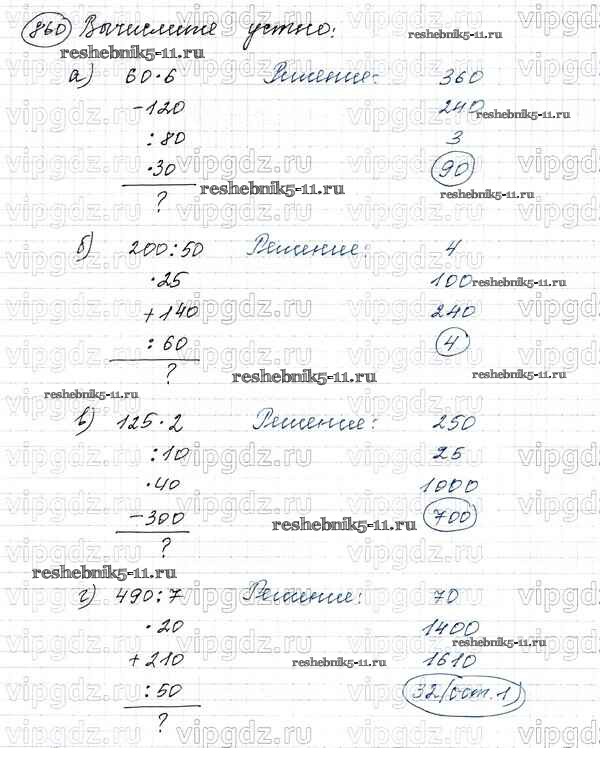 860 Вычислите устно:
reshebnik5-11.ru
reshebnik5-11.ru
а) 60·6 Решение: 360
-120 240
reshebnik5-11.ru
:80 3
·30 90
reshebnik5-11.ru
?
reshebnik5-11.ru
б) 200:50 Решение: 4
·25 100
reshebnik5-11.ru
+140 240
:60 4
? reshebnik5-11.ru
reshebnik5-11.ru
reshebnik5-11.ru
в) 125·2 Решение: 250
:10 25
·40 1000
-300 700
reshebnik5-11.ru
?
reshebnik5-11.ru
г) 490:7 Решение: 70
·20 1400
reshebnik5-11.ru
+210 1610
reshebnik5-11.ru
:50 32(ост.1)
?
vipgdz.ru